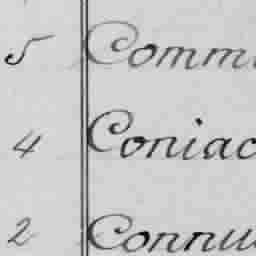 5 Comm
4 Coniac
2 Connu